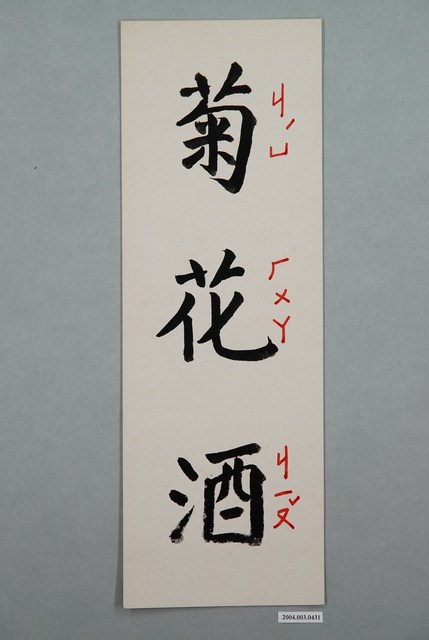 菊 ㄐㄩˊ
花 ㄏㄨㄚ
酒 ㄐㄧㄡˇ
2004.003.0431